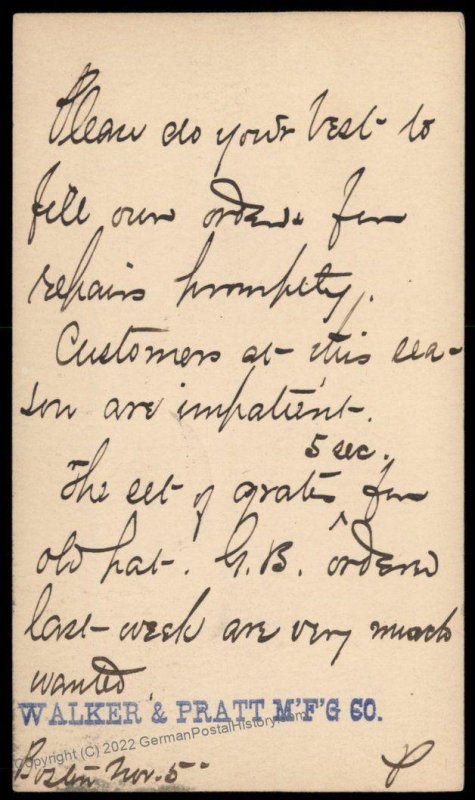 Please do your best to
fill our orders for
repairs promptly.
Customers at this sea-
son are impatient.
5 sec.
The set of grates for
old pat. G.B. ^ ordered
last week are very much
wanted.
WALKER & PRATT M'F'G CO.
Copyright (C) 2022 GermanPostalHistory.com
Boston Nov. 5 P